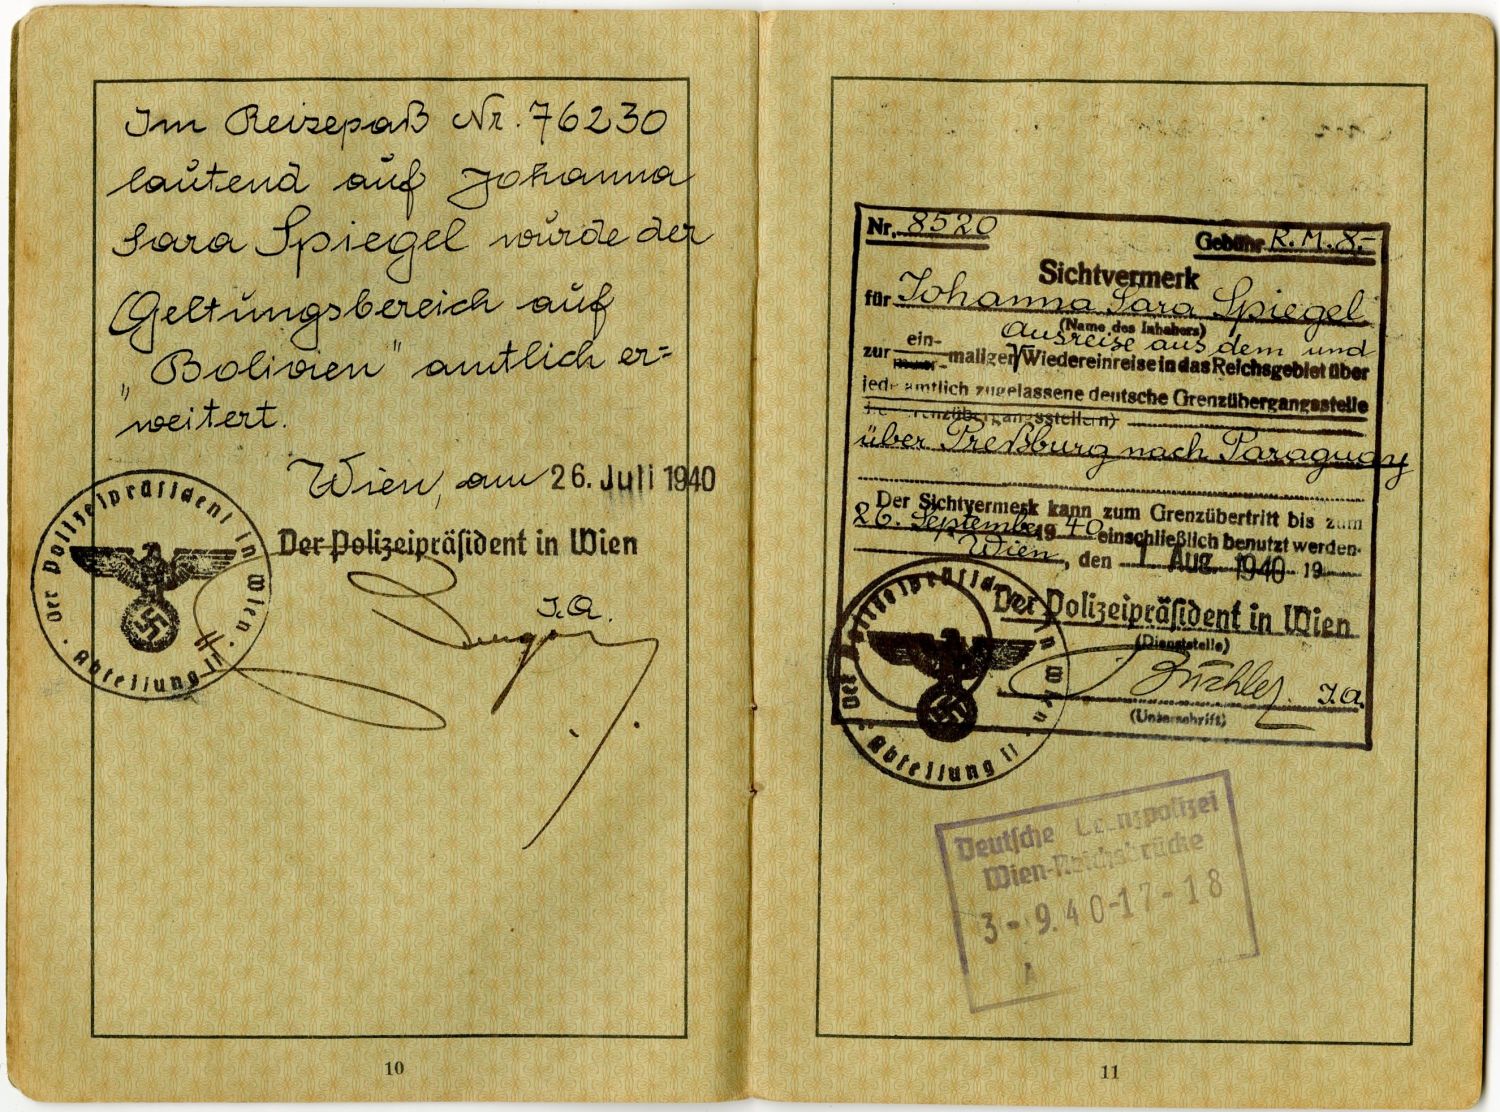 Im Reisepaß Nr. 76230
lautend auf Johanna
Sara Spiegel wurde der
Geltungsbereich auf
"Bolivien" amtlich er=
weitert.
Wien, am 26. Juli 1940
Der Polizeipräsident in Wien
I.A.
Der Polizeipräsident in Wien
Abteilung II
10
Nr. 8520
Gebühr R.M. 8.-
Sichtvermerk
für Johanna Sara Spiegel
(Name des Inhabers)
Ausreise aus dem und
ein-
zur maliger Wiedereinreise in das Reichsgebiet über
jede amtlich zugelassene deutsche Grenzübergangsstelle
Grenzübergangsstellen)
über Preßburg nach Paraguay
Der Sichtvermerk kann zum Grenzübertritt bis zum
26. September 19 40 einschließlich benutzt werden.
Wien, den 1. Aug. 1940 19
Der Polizeipräsident in Wien
(Dienststelle)
I.A.
(Unterschrift)
Der Polizeipräsident in Wien
Abteilung II
Deutsche Grenzpolizei
Wien-Reichsbrücke
3-9.40-17-18
A
11